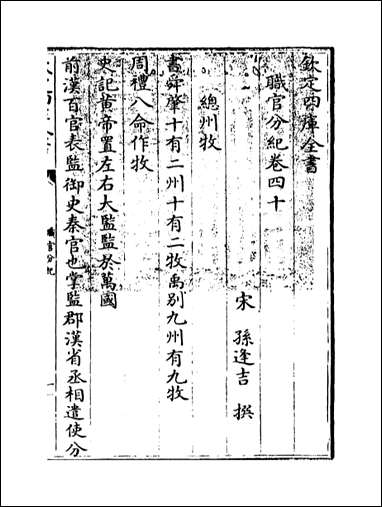 欽定四庫全書
職官分紀卷四十
宋 孫逢吉 撰
總州牧
書舜肇十有二州十有二牧禹別九州有九牧
周禮八命作牧
史記黃帝置左右大監監於萬國
前漢百官表監御史秦官也掌監郡漢省丞相遣使分
職官分紀
一